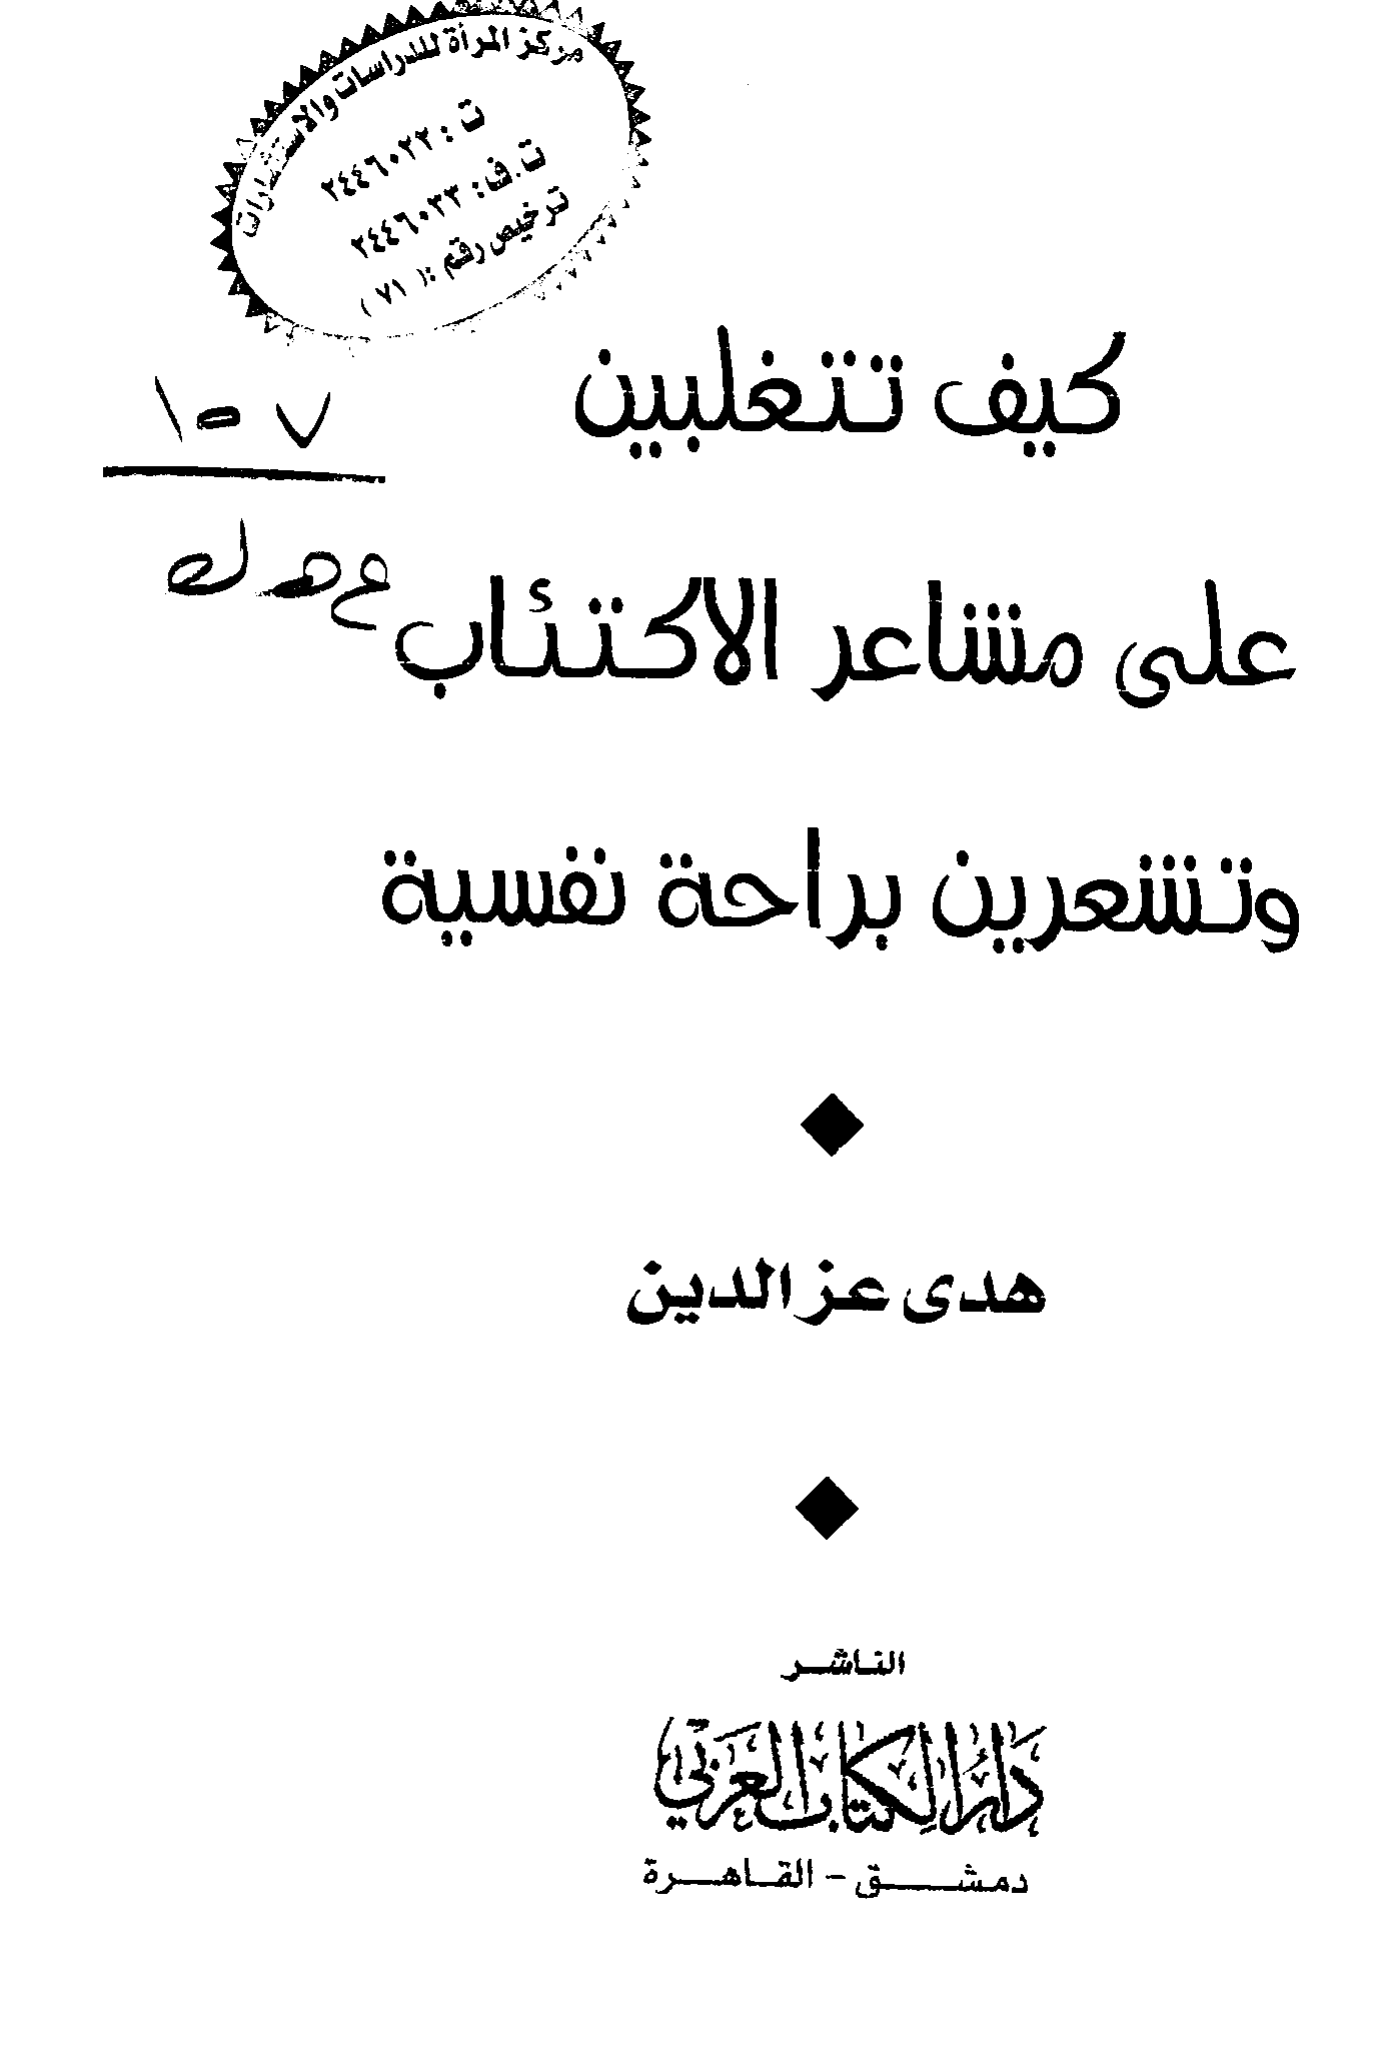 مركز المرأة للدراسات والاستشارات
ت : ٢٤٤٦٠٢٢
ت.ف: ٢٤٤٦٠٣٣
ترخيص رقم :( ٧١ )
كيف تتغلبين
على مشاعر الاكتئاب
وتشعرين براحة نفسية
هدى عز الدين
الناشر
دار الكتاب العربي
دمشق - القاهرة